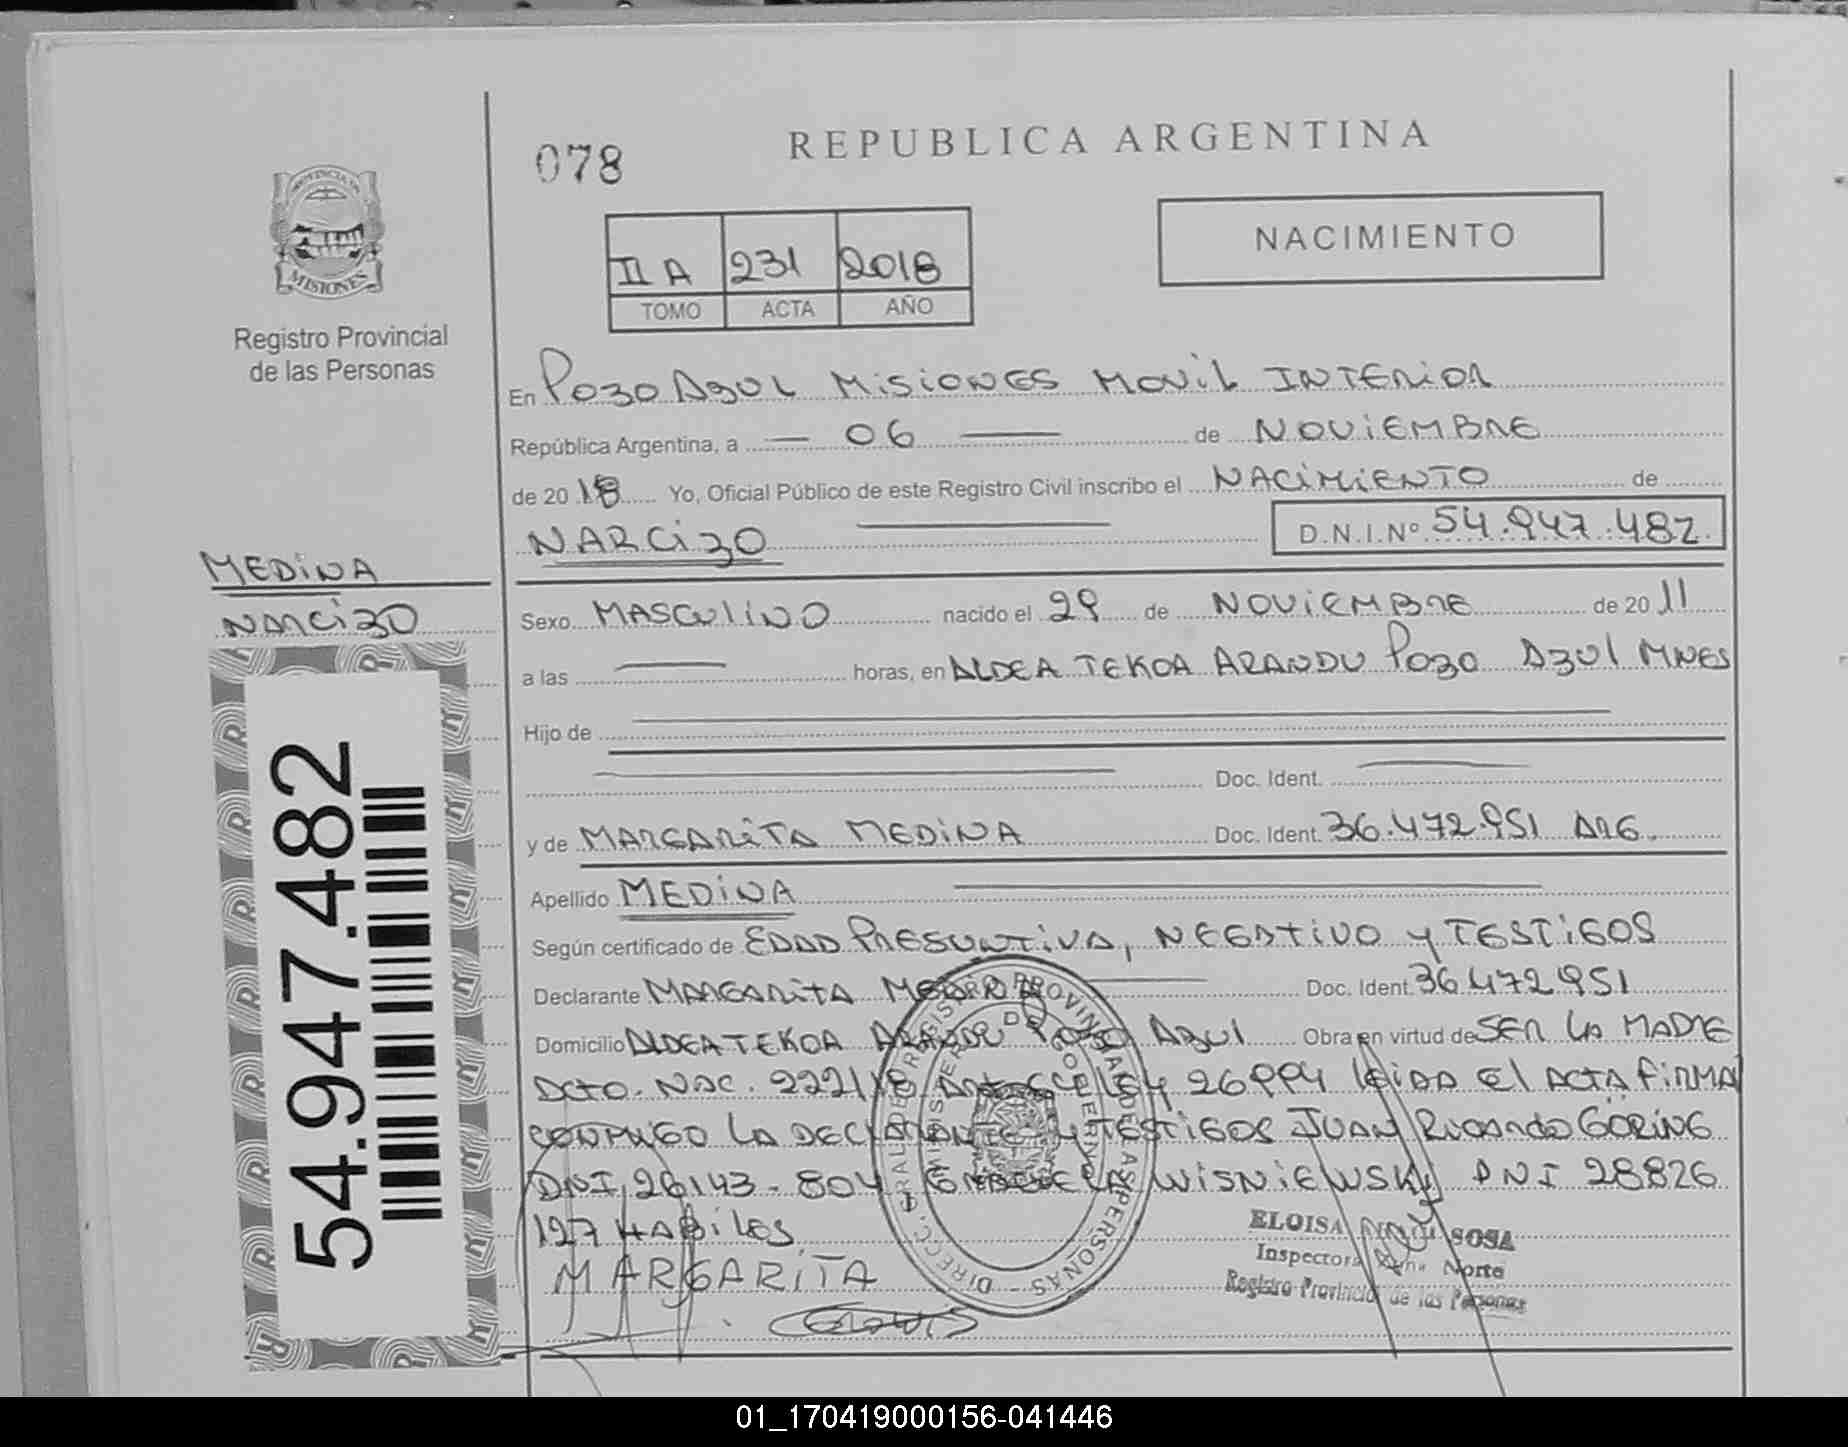 078
REPUBLICA ARGENTINA
NACIMIENTO
II A 231 2018
TOMO ACTA AÑO
PROVINCIA DE
MISIONES
Registro Provincial
de las Personas
En Pozo Azul Misiones Movil Interior
República Argentina, a — 06 — de NOVIEMBRE
de 2018 Yo, Oficial Público de este Registro Civil inscribo el NACIMIENTO de
NARCIZO D.N.I.Nº 54.947.482
MEDINA
NARCIZO
54.947.482
Sexo MASCULINO nacido el 29 de NOVIEMBRE de 2011
a las — horas, en ALDEA TEKOA ARANDU Pozo Azul MNES
Hijo de
Doc. Ident.
y de MARGARITA MEDINA Doc. Ident. 36.472.951 ARG.
Apellido MEDINA
Según certificado de EDAD PRESUNTIVA, NEGATIVO y TESTIGOS
Declarante MARGARITA MEDINA Doc. Ident. 36.472.951
Domicilio ALDEA TEKOA ARANDU Pozo Azul Obra en virtud de SER LA MADRE
DCTO. NAC. 222/18 LEY 26994 leida el ACTA FIRMA
CONMIGO LA DECLARANTE y TESTIGOS JUAN Ricardo GÖRING
DNI 26143.804 WISNIEWSKI DNI 28826
127 HABILES
MARGARITA
ELOISA SOSA
Inspectora Zona Norte
Registro Provincial de las Personas
01_170419000156-041446